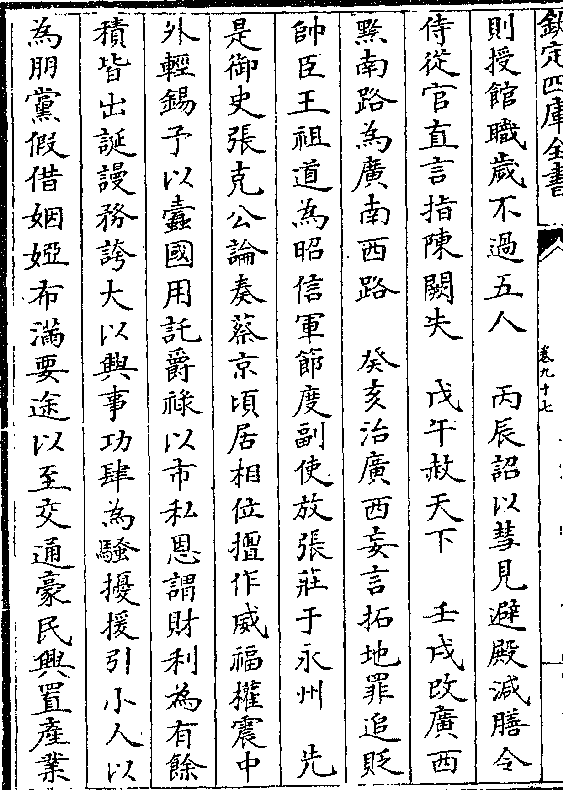 欽定四庫全書
卷九十七
則授館職歲不過五人　丙辰詔以彗見避殿減膳令
侍從官直言指陳闕失　戊午赦天下　壬戌改廣西
黔南路為廣南西路　癸亥治廣西妄言拓地罪追貶
帥臣王祖道為昭信軍節度副使放張莊于永州　先
是御史張克公論奏蔡京頃居相位擅作威福權震中
外輕錫予以蠹國用託爵祿以市私恩謂財利為有餘
積皆出誕謾務誇大以興事功肆為騷擾援引小人以
為朋黨假借姻婭布滿要途以至交通豪民興置產業